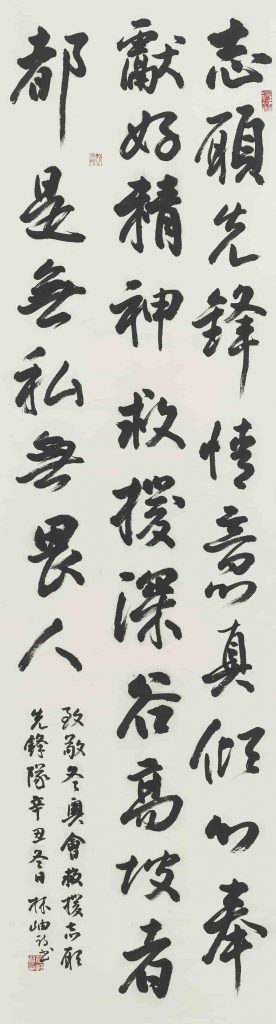 志願先鋒情意真傾心奉
獻好精神救援深谷高坡者
都是無私無畏人
致敬冬奧會救援志願
先鋒隊辛丑冬日林岫